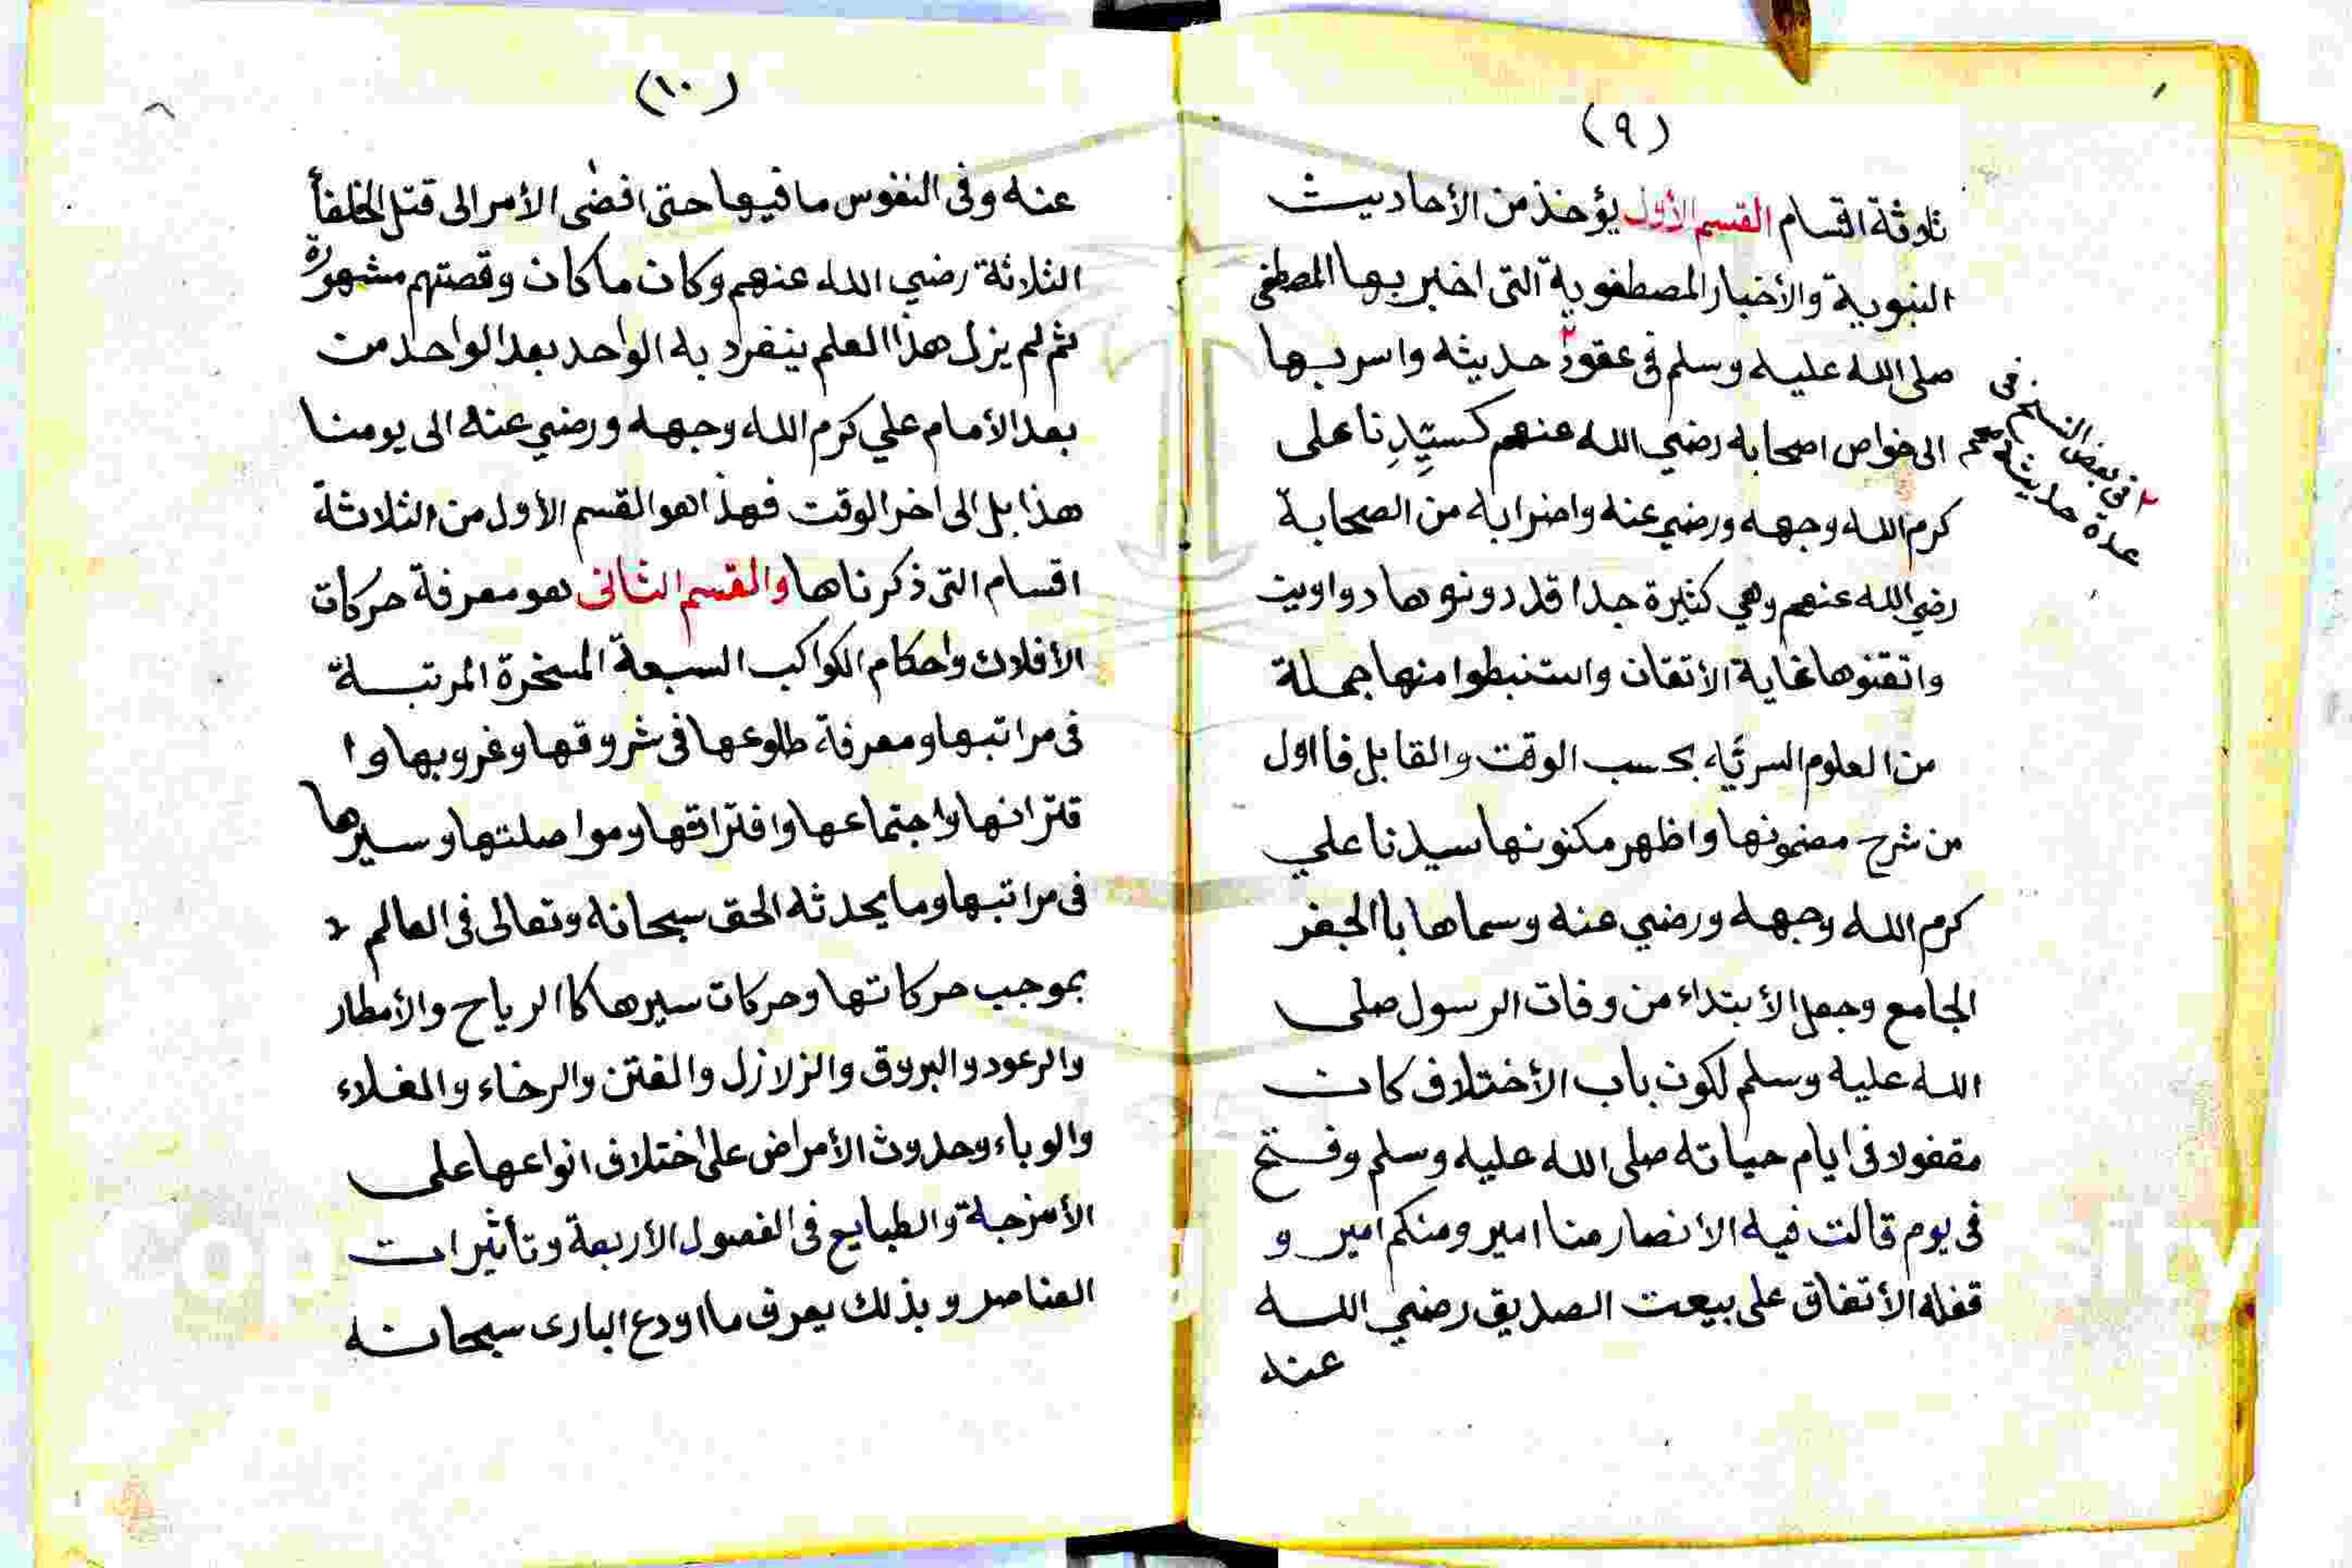 (٩)
ثلاوثة اقسام القسم الأول يؤخذ من الأحاديث
النبوية والأخبار المصطفوية التى اخبر بها المصطفى
صلى الله عليه وسلم فى عقود٢ حديثه واسر بها
الى خواص اصحابه رضي الله عنهم كسيّدِنا على
كرم الله وجهه ورضي عنه واضرابه من الصحابة
رضي الله عنهم وهي كثيرة جدا قد دونوها دواوين
واتقنوها غاية الأتقان واستنبطوا منها جملة
من العلوم السريَّه بحسب الوقت والقابل فااول
من شرح مضمونها واظهر مكنونها سيدنا علي
كرم الله وجهه ورضي عنه وسماها باالجفر
الجامع وجعل الأبتداء من وفات الرسول صلى
الله عليه وسلم لكون باب الأختلاف كان
مقفولا فى ايام حياته صلى الله عليه وسلم وفتح
فى يوم قالت فيه الانصار منا امير ومنكم امير و
قفله الأتفاق على بيعت الصديق رضي الله
عنه
٢ فى بعض النسخ فى
عدة حديثه
(١٠)
عنه وفى النفوس ما فيها حتى افضى الأمر الى قتل الخلفأ
الثلاثة رضي الله عنهم وكان ما كان وقصتهم مشهورة
ثم لم يزل هذا العلم ينفرد به الواحد بعد الواحد من
بعد الأمام علي كرم الله وجهه ورضي عنه الى يومنا
هذا بل الى اخر الوقت فهذا هو القسم الأول من الثلاثة
اقسام التى ذكرناها والقسم الثانى هو معرفة حركات
الأفلاك واحكام الكواكب السبعة المسخرة المرتبة
فى مراتبها ومعرفة طلوعها فى شروقها وغروبها وا
قترانها واجتماعها وافتراقها ومواصلتها وسيرها
فى مراتبها وما يحدثه الحق سبحانه وتعالى فى العالم
بموجب حركاتها وحركات سيرها كاالرياح والأمطار
والرعود والبروق والزلازل والفتن والرخاء والغلاء
والوباء وحدوث الأمراض على اختلاف انواعها على
الأمزجة والطبايع فى الفصول الأربعة وتأثيرات
العناصر وبذلك يعرف مااودع البارى سبحانه